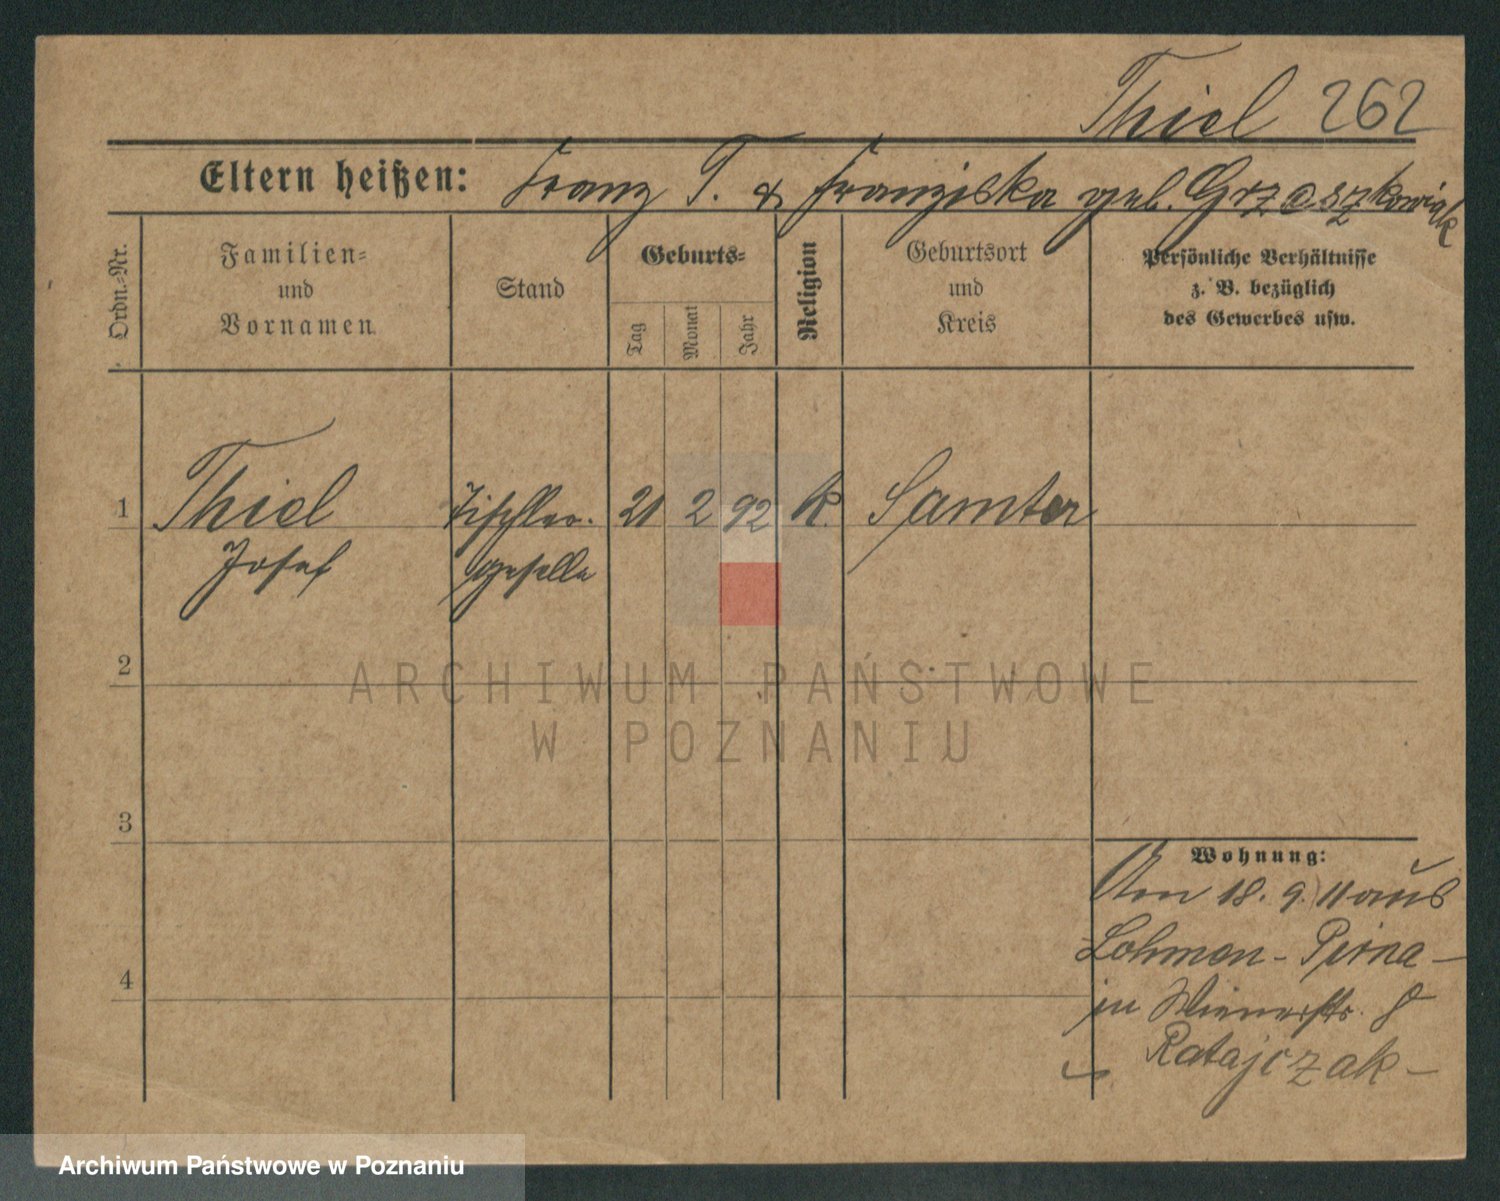 Thiel 262
Eltern heißen: Franz T. & Franziska geb. Grzeszkowiak
Ordn.-Nr.
Familien-
und
Vornamen
Stand
Geburts-
Tag
Monat
Jahr
Religion
Geburtsort
und
Kreis
Persönliche Verhältnisse
z. B. bezüglich
des Gewerbes usw.
1 Thiel Tischler- 21 2 92 K. Samter
Josef geselle
2
3
4
Wohnung:
Am 18. 9. 11 aus
Lohmen - Pirna -
in Wienerstr. 8
Ratajczak -
ARCHIWUM PAŃSTWOWE
W POZNANIU
Archiwum Państwowe w Poznaniu